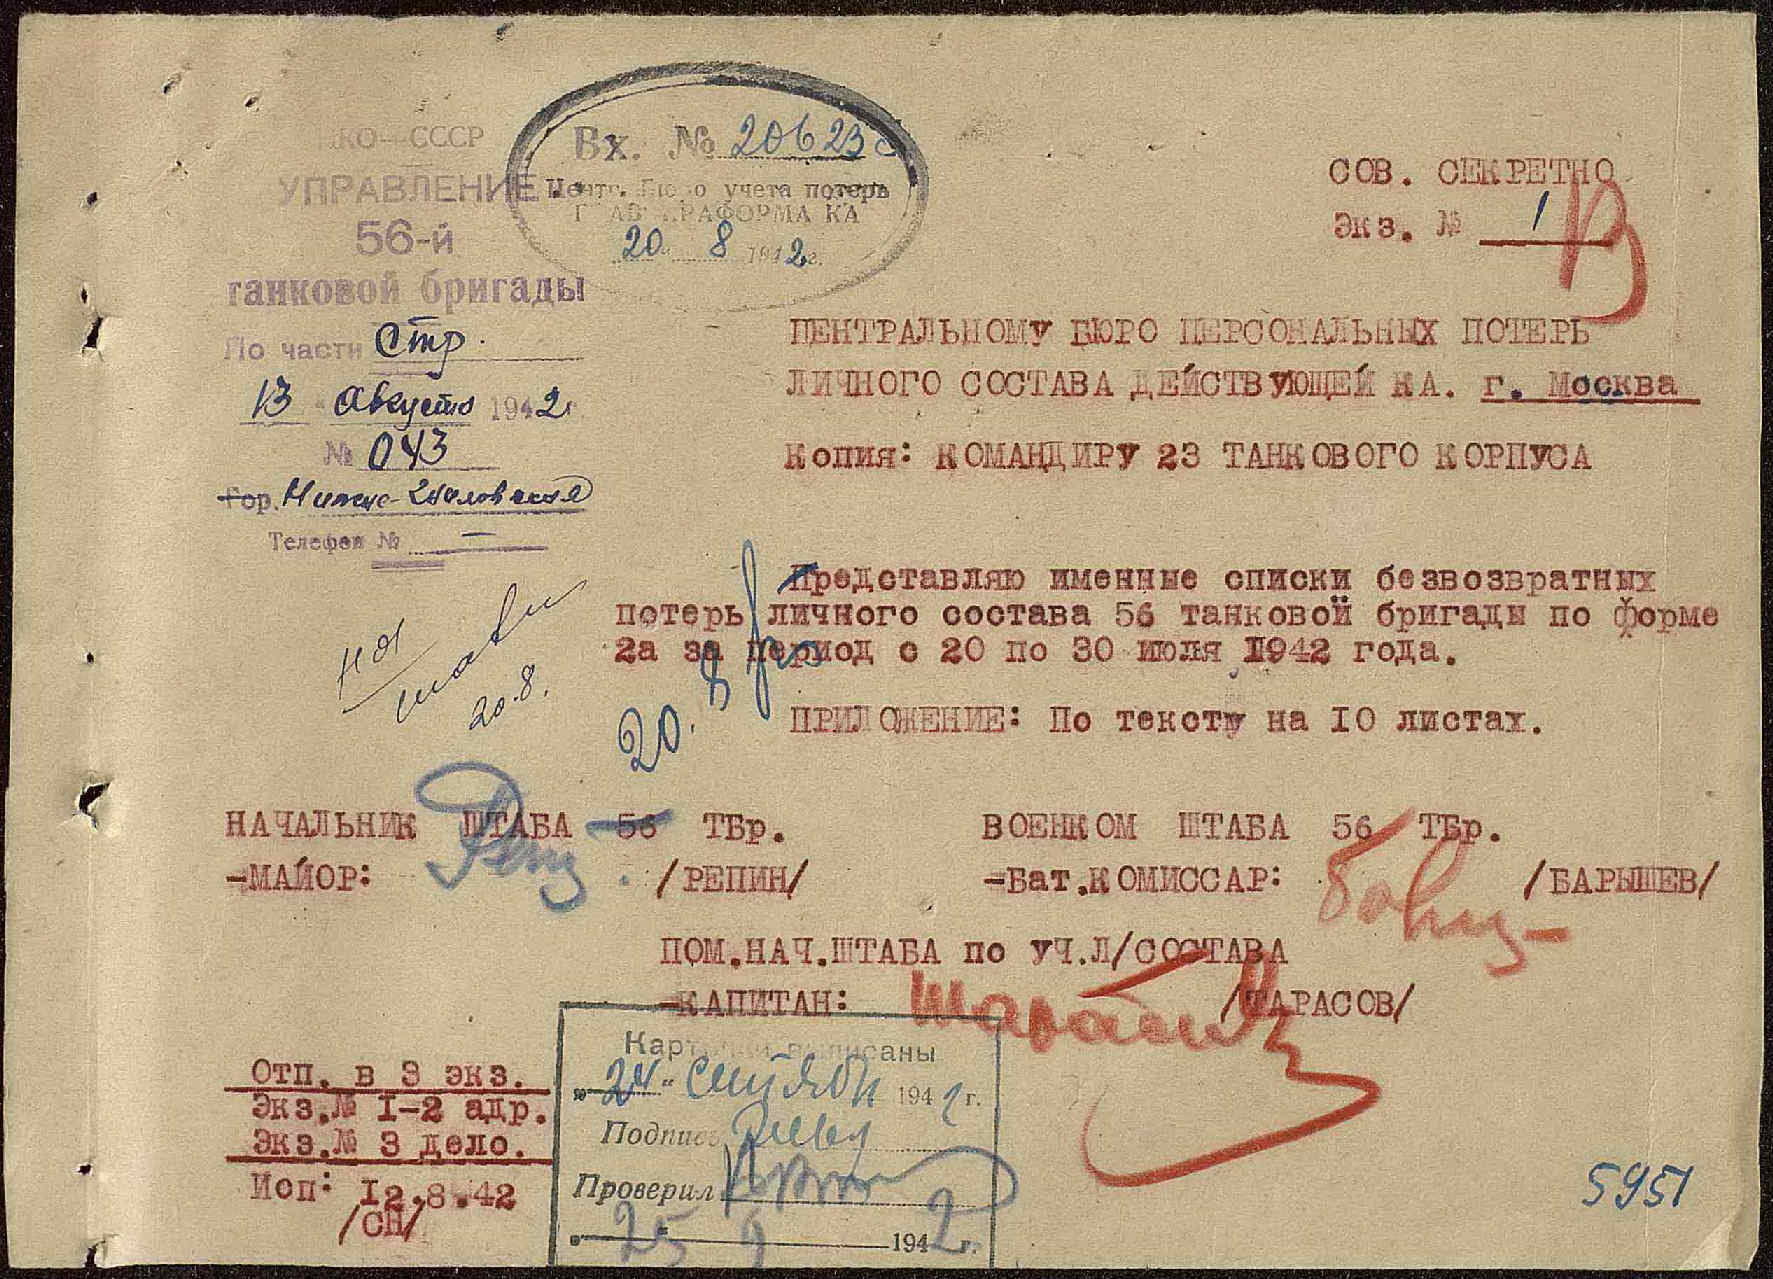 НКО-СССР
УПРАВЛЕНИЕ
56-й
танковой бригады
По части Стр.
13 " Августа 1942 г.
№ 043
Гор.
Телефон № —
Вх. № 20623с
Центр. Бюро учета потерь
ГЛАВУПРАФОРМА КА
20 8 1942г.
СОВ. СЕКРЕТНО
Экз. № 1
ЦЕНТРАЛЬНОМУ БЮРО ПЕРСОНАЛЬНЫХ ПОТЕРЬ
ЛИЧНОГО СОСТАВА ДЕЙСТВУЮЩЕЙ КА. г. Москва
Копия: КОМАНДИРУ 23 ТАНКОВОГО КОРПУСА
Представляю именные списки безвозвратных
потерь личного состава 56 танковой бригады по форме
2а за период с 20 по 30 июля 1942 года.
20.8.
20.8
ПРИЛОЖЕНИЕ: По тексту на I0 листах.
НАЧАЛЬНИК ШТАБА 56 ТБр.
-МАЙОР: /РЕПИН/
ВОЕНКОМ ШТАБА 56 ТБр.
-Бат.КОМИССАР: /БАРЫШЕВ/
ПОМ.НАЧ.ШТАБА по УЧ.Л/СОСТАВА
-КАПИТАН: /ТАРАСОВ/
Отп. в 3 экз.
Экз.№ I-2 адр.
Экз.№ 3 дело.
Исп: I2.8.42
/СН/
Карточки выписаны
„24" сентября 1942 г.
Подпись
Проверил
25 9 1942 г.
5951